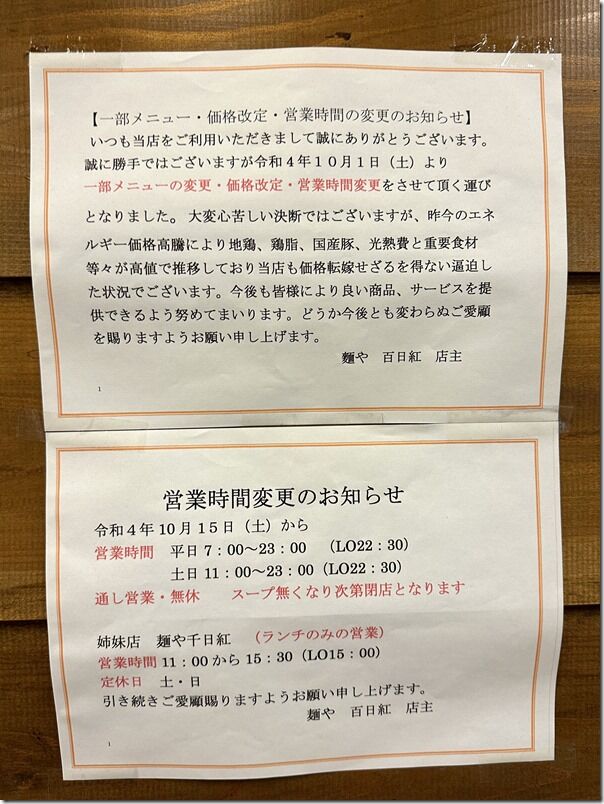 【一部メニュー・価格改定・営業時間の変更のお知らせ】
いつも当店をご利用いただきまして誠にありがとうございます。
誠に勝手ではございますが令和４年１０月１日（土）より
一部メニューの変更・価格改定・営業時間変更をさせて頂く運び
となりました。大変心苦しい決断ではございますが、昨今のエネ
ルギー価格高騰により地鶏、鶏脂、国産豚、光熱費と重要食材
等々が高値で推移しており当店も価格転嫁せざるを得ない逼迫し
た状況でございます。今後も皆様により良い商品、サービスを提
供できるよう努めてまいります。どうか今後とも変わらぬご愛顧
を賜りますようお願い申し上げます。
麺や　百日紅　店主
1
営業時間変更のお知らせ
令和４年 10 月 15 日（土）から
営業時間　平日 7：00～23：00　（LO22：30）
土日 11：00～23：00（LO22：30）
通し営業・無休　　スープ無くなり次第閉店となります
姉妹店　麺や千日紅　（ランチのみの営業）
営業時間 11：00 から 15：30（LO15：00）
定休日　土・日
引き続きご愛顧賜りますようお願い申し上げます。
麺や　百日紅　店主
1